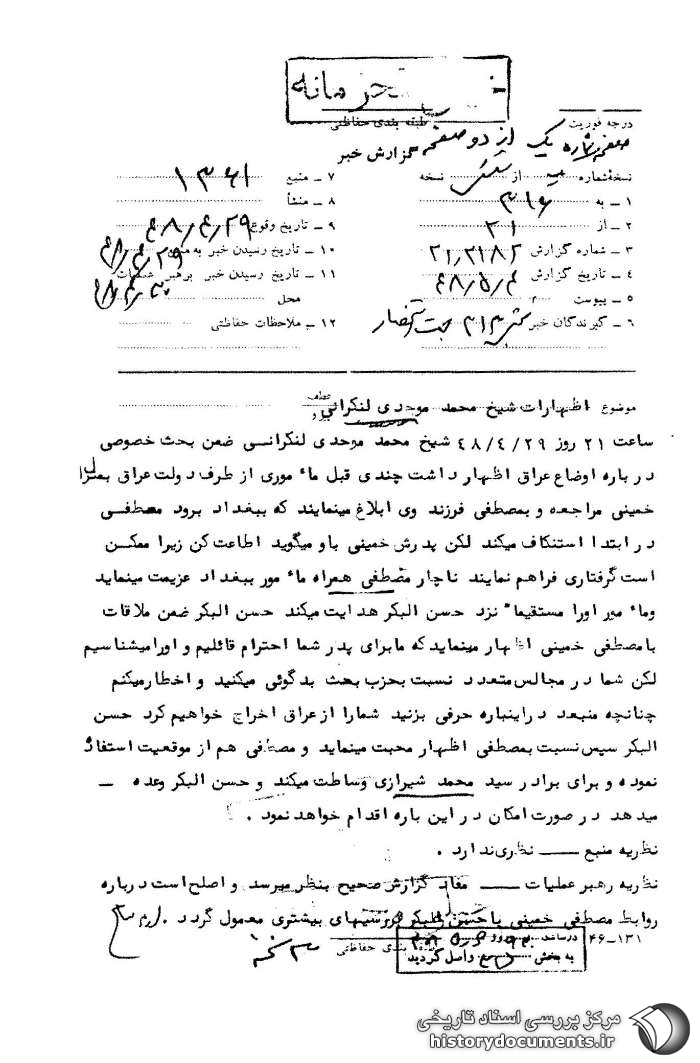 محرمانه
درجه فوریت
طبقه بندی حفاظتی
صفحه شماره یک از دو صفحه
گزارش خبر
نسخه شماره از نسخه
۱ ـ به ۳۱۶
۲ ـ از ۲۱
۳ ـ شماره گزارش
۴ ـ تاریخ گزارش
۵ ـ پیوست
۶ ـ گیرندگان خبر
۷ ـ منبع
۸ ـ منشأ
۹ ـ تاریخ وقوع
۱۰ ـ تاریخ رسیدن خبر به منبع
۱۱ ـ تاریخ رسیدن خبر برهبر عملیات
محل
۱۲ ـ ملاحظات حفاظتی
موضوع اظهارات شیخ محمد موحدی لنکرانی
ساعت ۲۱ روز ۴۸/۴/۲۹ شیخ محمد موحدی لنکرانی ضمن بحث خصوصی
درباره اوضاع عراق اظهار داشت چندی قبل ماءموری از طرف دولت عراق بمنزل
خمینی مراجعه و بمصطفی فرزند وی ابلاغ مینمایند که ببغداد برود مصطفی
در ابتدا استنکاف میکند لکن پدرش خمینی باو میگوید اطاعت کن زیرا ممکن
است گرفتاری فراهم نمایند ناچار مصطفی همراه ماءمور ببغداد عزیمت مینماید
وماءمور اورا مستقیماء نزد حسن البکر هدایت میکند حسن البکر ضمن ملاقات
بامصطفی خمینی اظهار مینماید که مابرای پدر شما احترام قائلیم و اورا میشناسیم
لکن شما در مجالس متعدد نسبت بحزب بعث بدگوئی میکنید و اخطار میکنم
چنانچه منبعد دراینباره حرفی بزنید شمارا از عراق اخراج خواهیم کرد حسن
البکر سپس نسبت بمصطفی اظهار محبت مینماید و مصطفی هم از موقعیت استفاده
نموده و برای برادر سید محمد شیرازی وساطت میکند و حسن البکر وعده ـ
میدهد در صورت امکان در این باره اقدام خواهد نمود .
نظریه منبع ـــ نظری ندارد .
نظریه رهبر عملیات ـــ مفاد گزارش صحیح بنظر میرسد و اصلح است درباره
روابط مصطفی خمینی با حسن البکر بررسیهای بیشتری معمول گردد .
۴۶-۱۳۱
طبقه بندی حفاظتی
درساعت روز
به بخش واصل گردید
مرکز بررسی اسناد تاریخی
historydocuments.ir